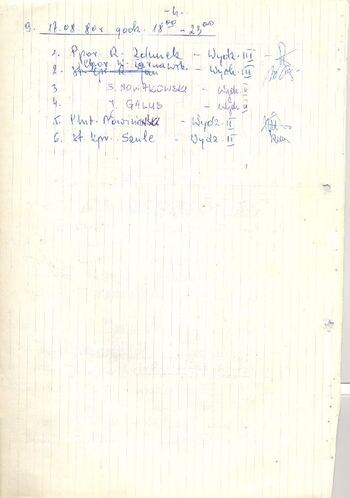 - 4. -
B. 17.08 80r godz. 18⁰⁰ - 23⁰⁰
1. Ppor. R. Zdunek - Wydz. III -
- Wydz. III
2.
3 S. NOWAKOWSKI - Wydz. II
4. J. GALUS - Wydz. II
5. Plut. Nowiński - Wydz. II
6. St. kpr. Szulc - Wydz. II